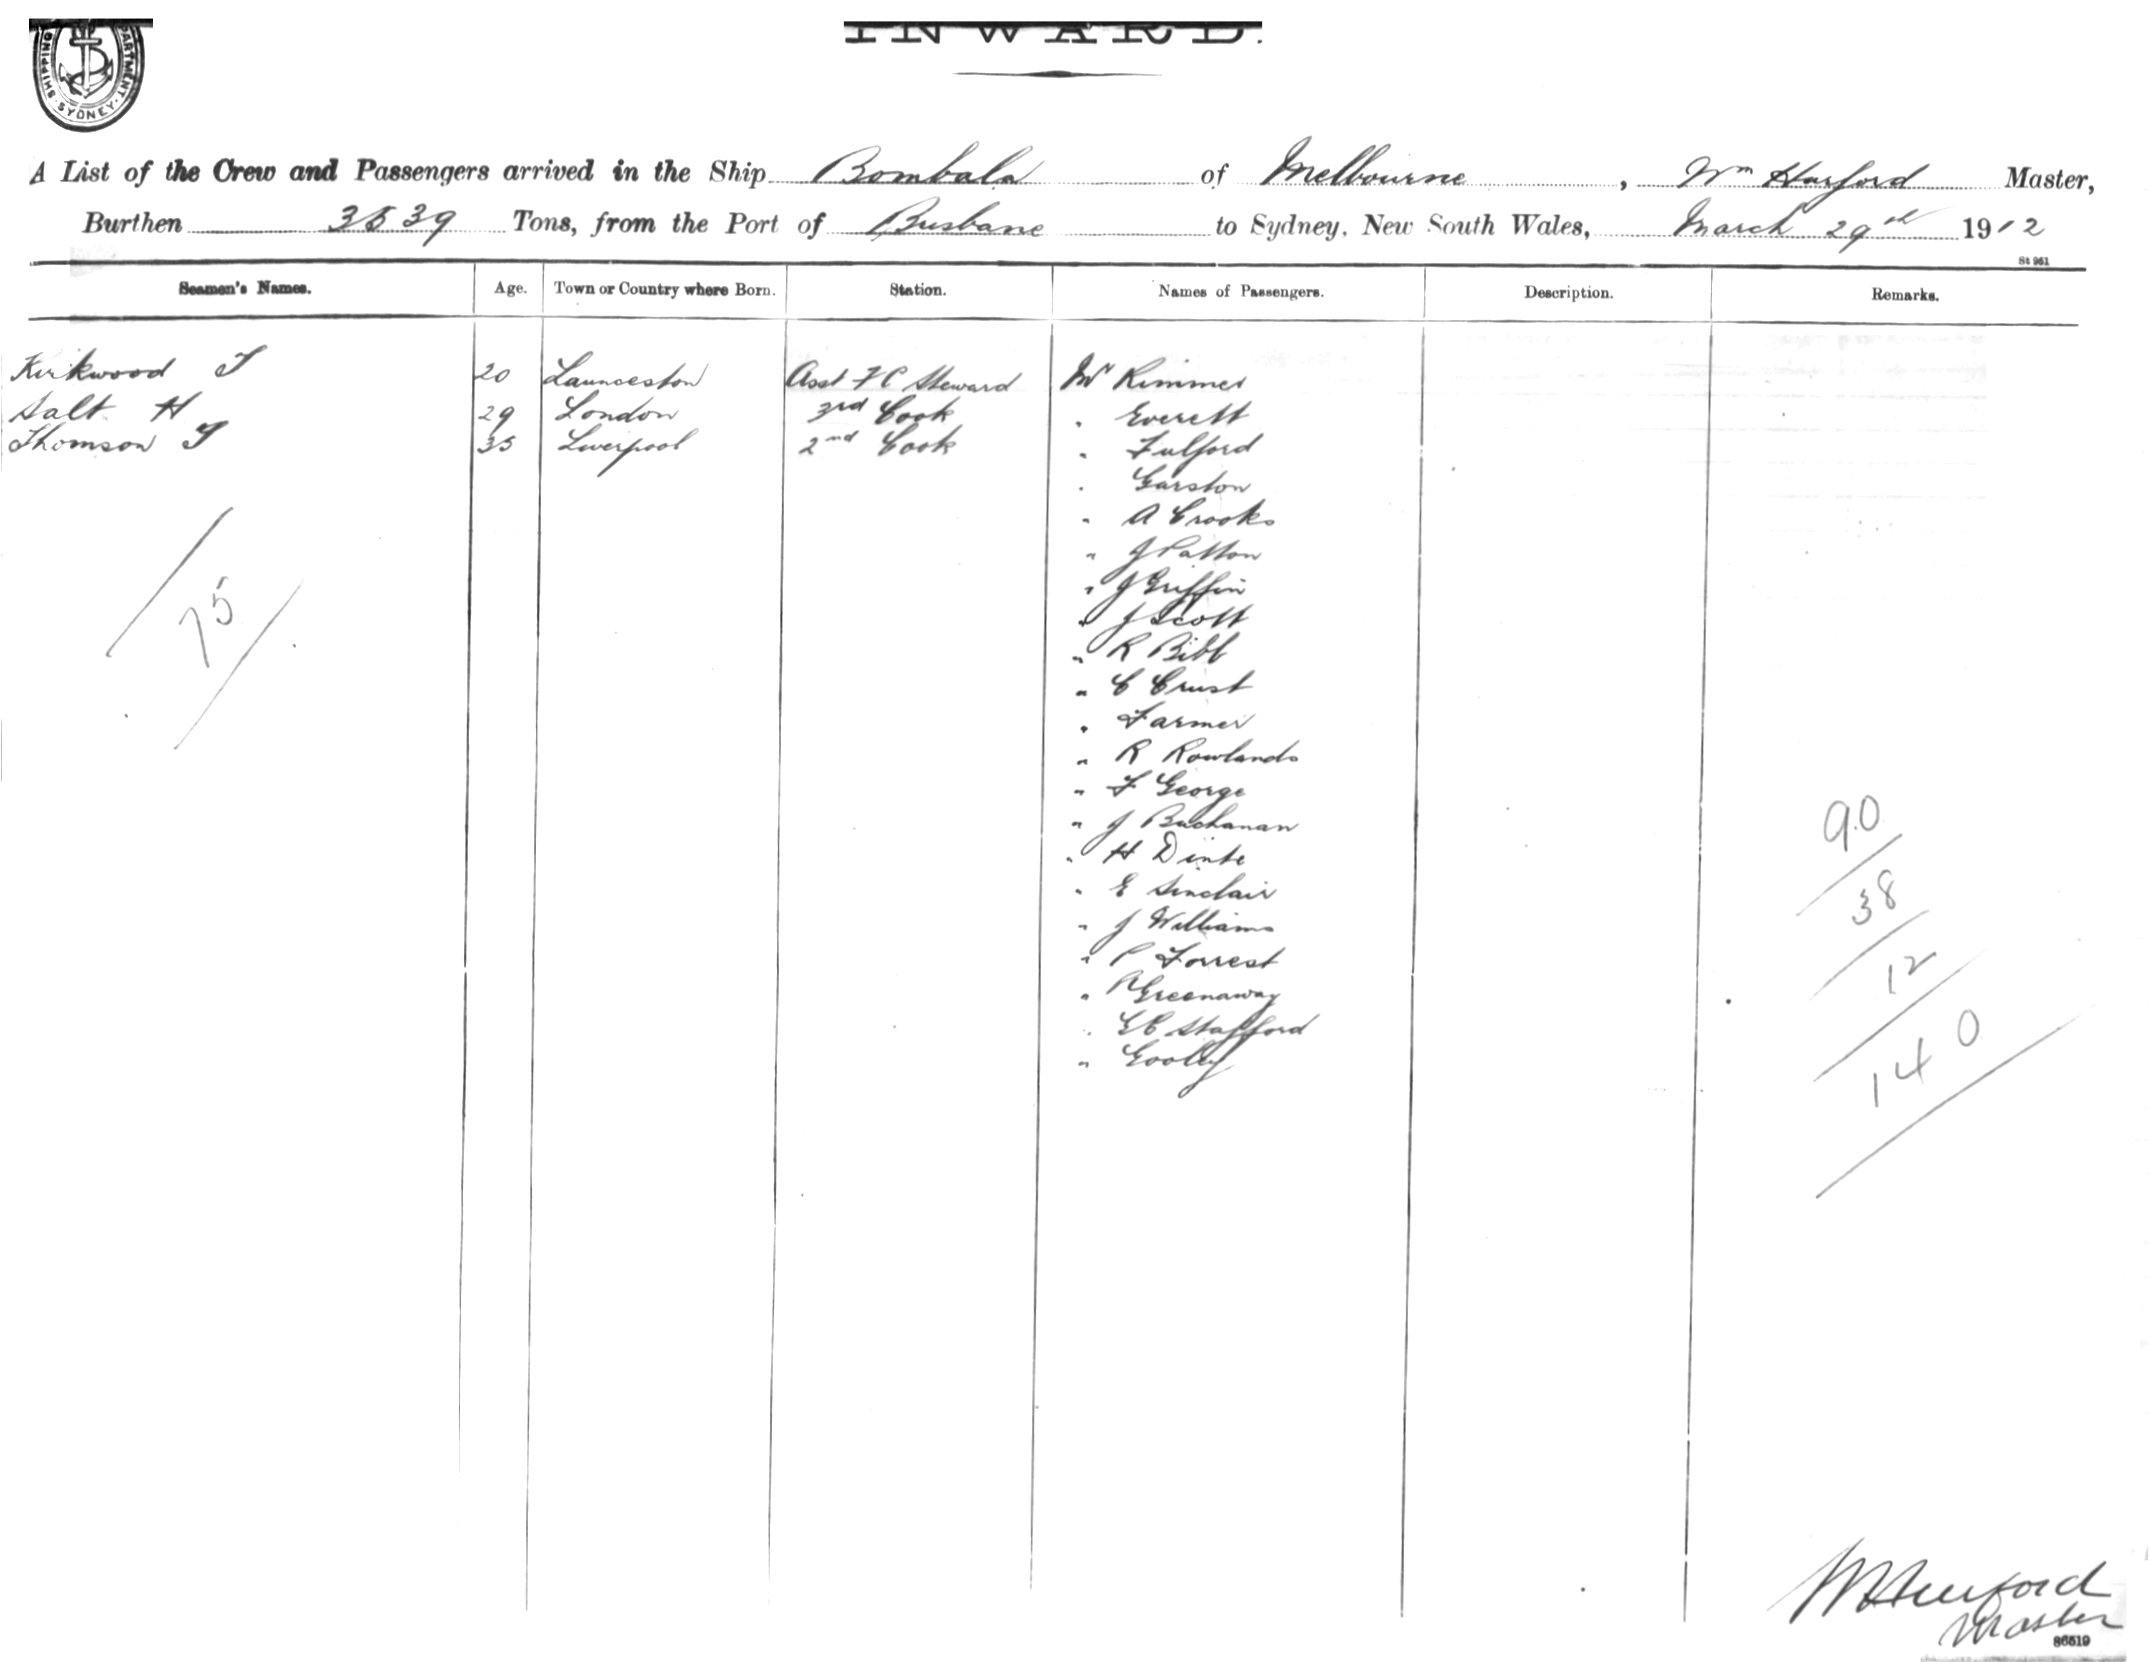 SHIPPING DEPARTMENT SYDNEY
INWARD.
A List of the Crew and Passengers arrived in the Ship Bombala of Melbourne, Wm Harford Master,
Burthen 3539 Tons, from the Port of Brisbane to Sydney, New South Wales, March 29th 1912
St 961
Seamen's Names. Age. Town or Country where Born. Station. Names of Passengers. Description. Remarks.
Kirkwood T 20 Launceston Asst F C Steward Mr Rimmer
Salt H 29 London 3rd Cook " Everett
Thomson T 35 Liverpool 2nd Cook " Fulford
" Garston
" A Crooks
" J Patton
" J Griffin
" J Scott
" R Bibb
" C Crust
" Farmer
" R Rowlands
" F George
" J Buchanan
" H Dinte
" E Sinclair
" J Williams
" P Forrest
" A Greenaway
" E C Stafford
" Gooley
75
90
38
12
140
W Harford
Master
86519